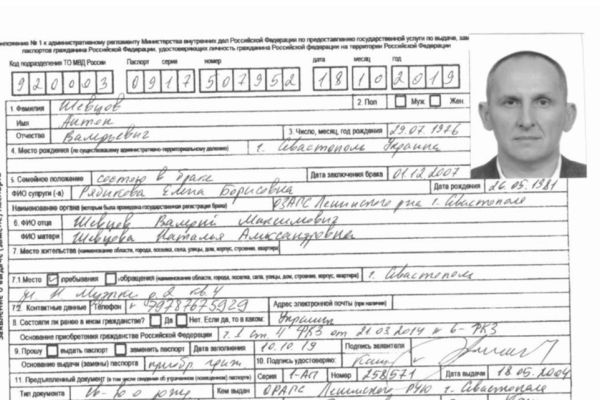 риложение № 1 к административному регламенту Министерства внутренних дел Российской Федерации по предоставлению государственной услуги по выдаче, зам
паспортов гражданина Российской Федерации, удостоверяющих личность гражданина Российской Федерации на территории Российской Федерации
Код подразделения ТО МВД России Паспорт серия номер дата месяц год
920003 0917 507952 18 10 2019
1. Фамилия Шевцов 2. Пол Муж Жен
Имя Антон
Отчество Валерьевич 3. Число, месяц, год рождения 29.07.1976
4. Место рождения (по существовавшему административно-территориальному делению) г. Севастополь Украина
5. Семейное положение состою в браке Дата заключения брака 01.12.2007
ФИО супруги (-а) Рядикова Елена Борисовна Дата рождения 26.05.1981
Наименование органа (которым была произведена государственная регистрация брака) ОЗАГС Ленинского р-на г. Севастополя
6. ФИО отца Шевцов Валерий Максимович
ФИО матери Шевцова Наталья Александровна
7. Место жительства (наименование области, города, поселка, села, улицы, дом, строение, корпус, квартира)
7.1 Место пребывания обращения (наименование области, города, поселка, села, улицы, дом, строение, корпус, квартира) г. Севастополь
д. 2 кв. 4
12. Контактные данные Телефон +79787675929 Адрес электронной почты (при наличии)
8. Состояли ли ранее в ином гражданстве? Да Нет. Если да, то в каком: Украины
Основание приобретения гражданства Российской Федерации ч. 1 ст 4 ФКЗ от 21.03.2014 № 6-ФКЗ
9. Прошу выдать паспорт заменить паспорт Дата заполнения 10.10.19 Подпись заявителя
Основание выдачи (замены) паспорта приобр. граж. 10. Подпись удостоверяю:
11. Предъявленный документ (в том числе сведения об утраченном (похищенном) паспорте) Серия 1-АП Номер 258571 Дата выдачи 18.05.2004
Тип документа Кем выдан ОРАГС Ленинского РУЮ г. Севастополя